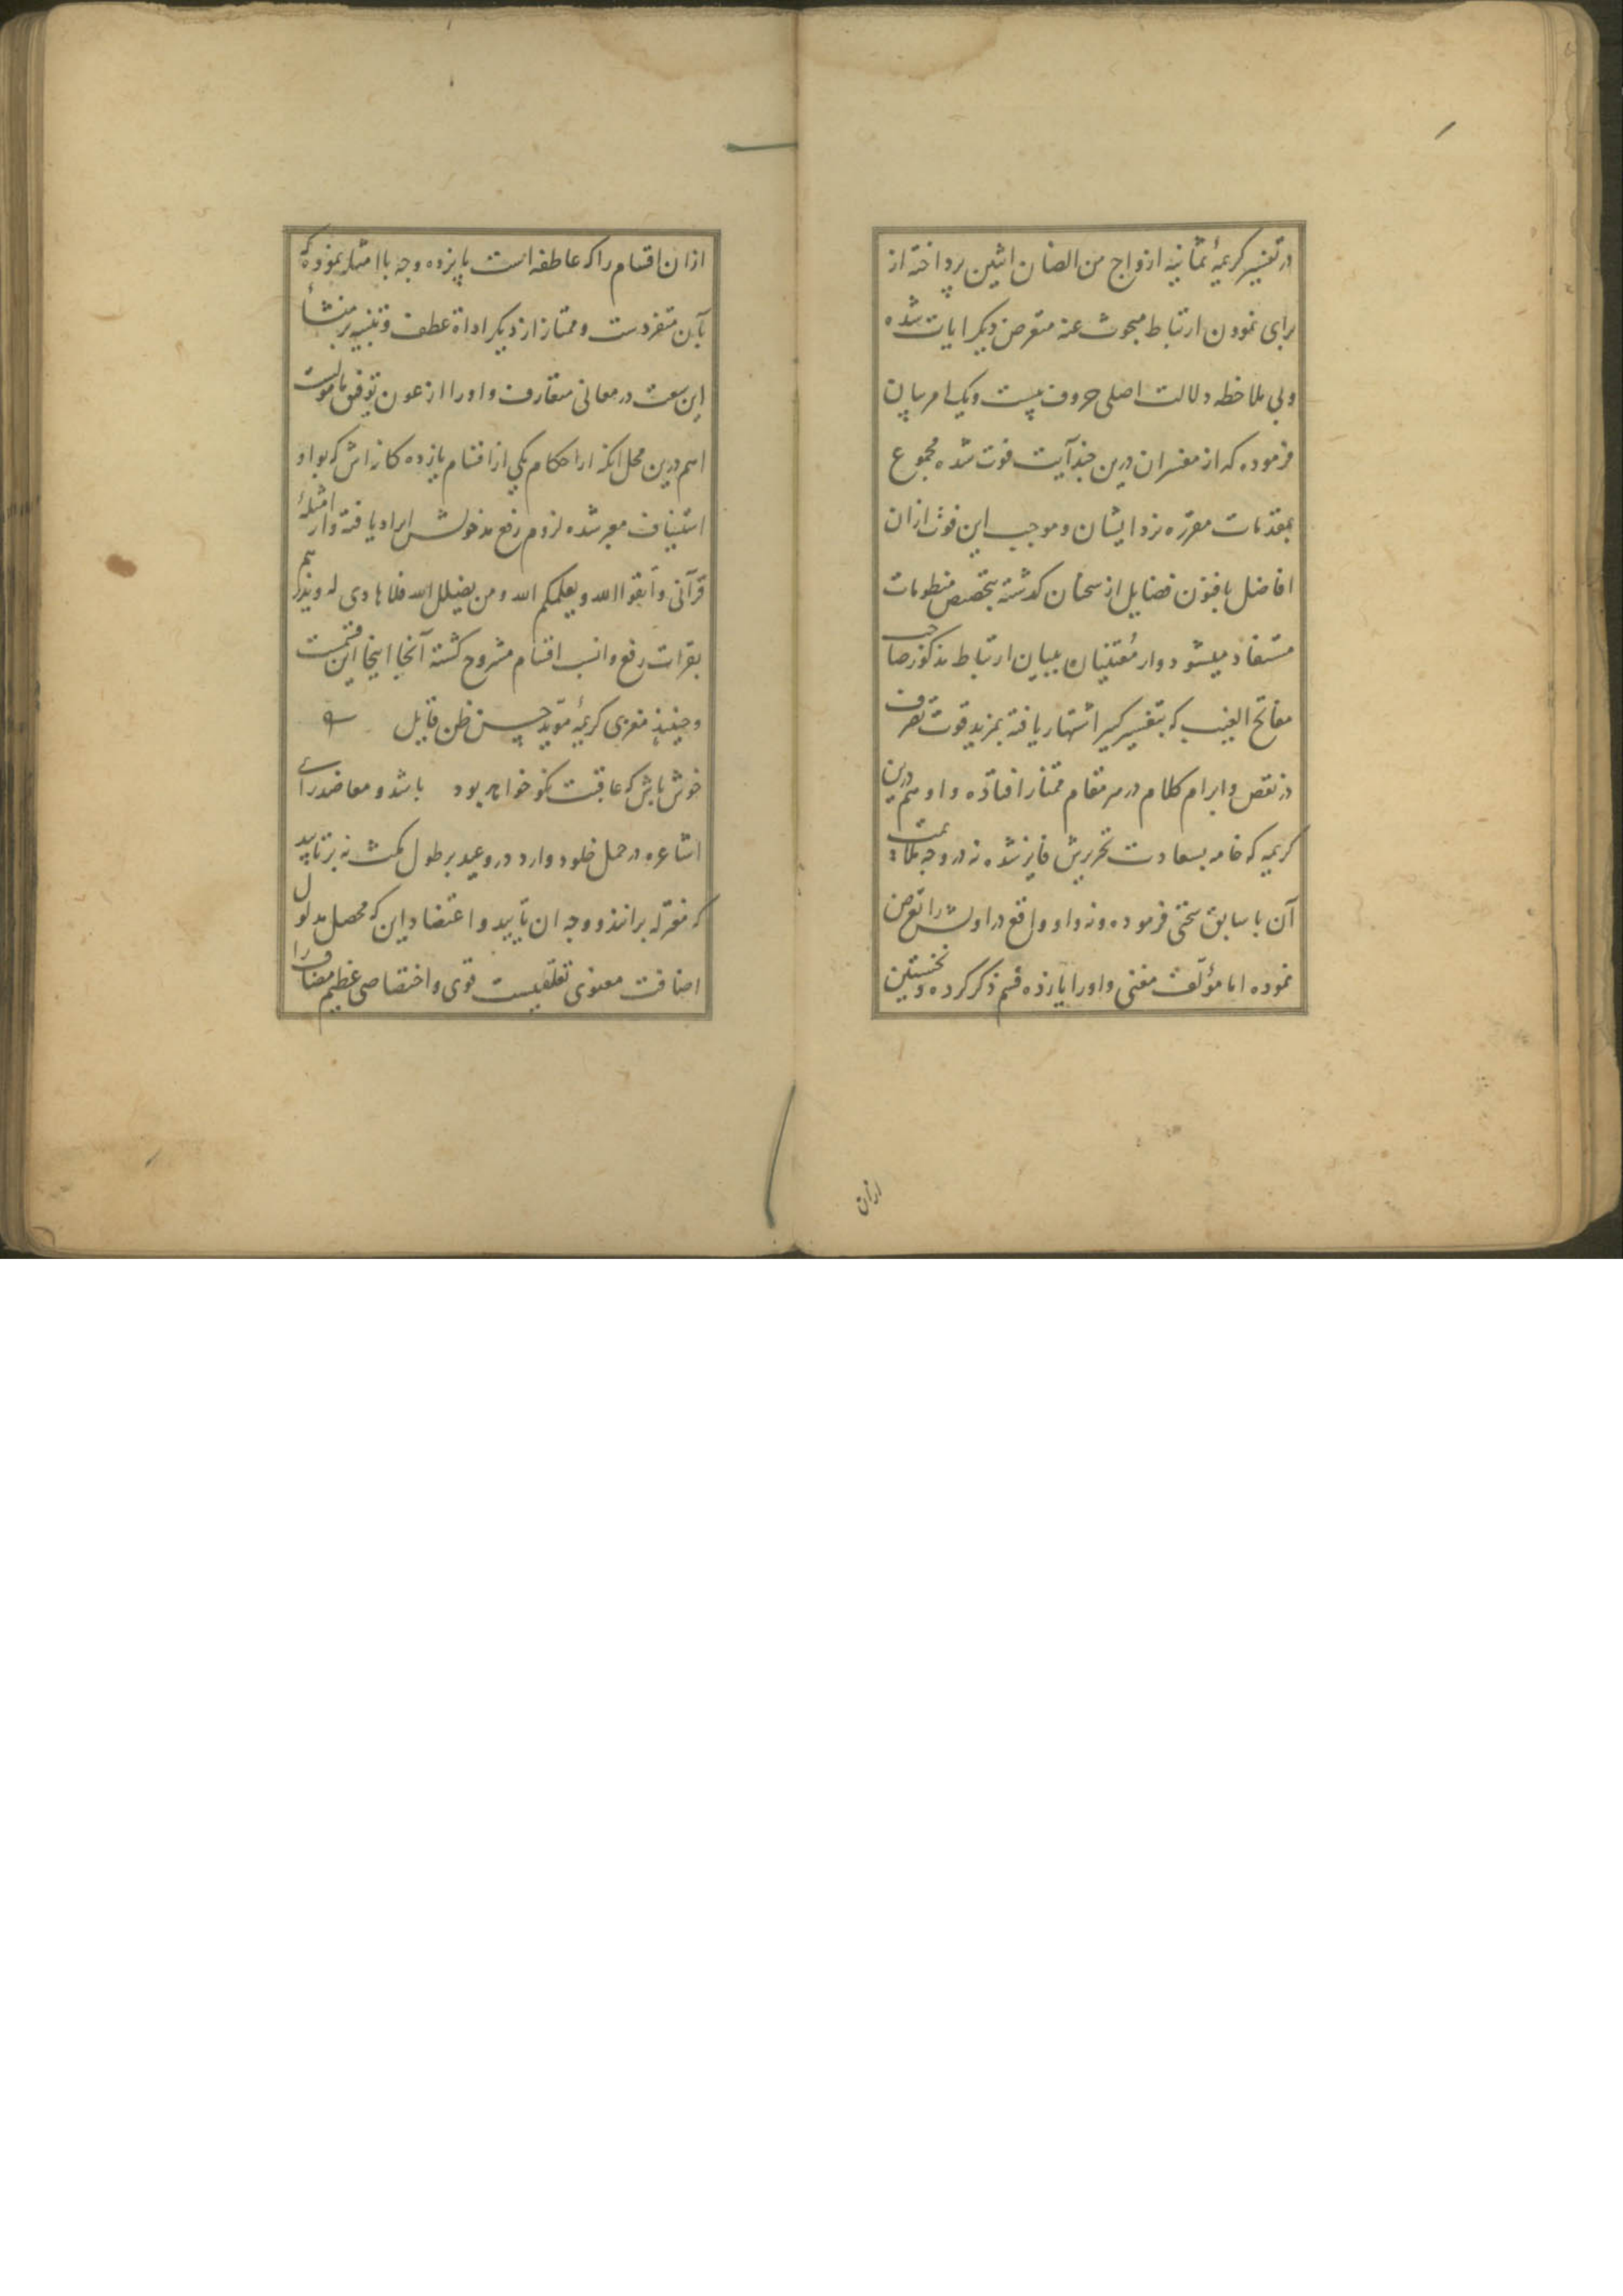 در تفسیر کریمهٔ ثمانیة ازواج من الضان اثنین پرداخته از
برای نمودن ارتباط مبحوث عنه متعرض دیکر ایات شده
و بی ملاحظه دلالت اصلی حروف بیست و یک امر بیان
فرموده که از مفسران درین چند آیت فوت شده مجموع
بمقدمات مقرره نزد ایشان و موجب این فوت ازان
افاضل با فنون فضایل از سخنان کذشته بتخصیص منطومات
مستفاد میشود و از معتنیان ببیان ارتباط مذکور صاحب
مفاتح الغیب که بتفسیر کبیر اشتهار یافته بمزید قوت تصرف
در نقض و ابرام کلام در هر مقام ممتاز افتاده و او هم درین
کریمه که خامه بسعادت تحریرش فایز شده نه در وجه ملائمت
آن با سابق سخنی فرموده و نه واو واقع در اولش را تعرض
نموده اما مؤلف مغنی واو را یازده قسم ذکر کرده و نخستین
ازان
ازان اقسام را که عاطفه است پانزده وجه با امتیاز نموده که
بآن متفردست و ممتاز از دیکر اداة عطف و تنبیه بر منشأ
این سعت در معانی متعارف واو را از عون توفیق مامولست
اهم درین محل انکه از احکام یکی از اقسام یازده کانه اش که بواو
استیناف معبر شده لزوم رفع مدخولش ایراد یافته و از امثلهٔ
قرآنی واتقوا الله و یعلمکم الله و من یضلل الله فلا هادی له و یذرهم
بقرات رفع وانسب اقسام مشروح کشته آنجا اینجا این قسمست
و حینئذ مغزی کریمهٔ مؤید حسن ظن قایل
خوش باش که عاقبت نکو خواهد بود باشد و معاضد رای
اشاعره در حمل خلود وارد در وعید بر طول مکث نه بر تابید
که معتزله برانند و وجه ان تایید و اعتضاد این که محصل مدلول
اضافت معنوی تعلقیست قوی و اختصاصی عظیم مضاف را